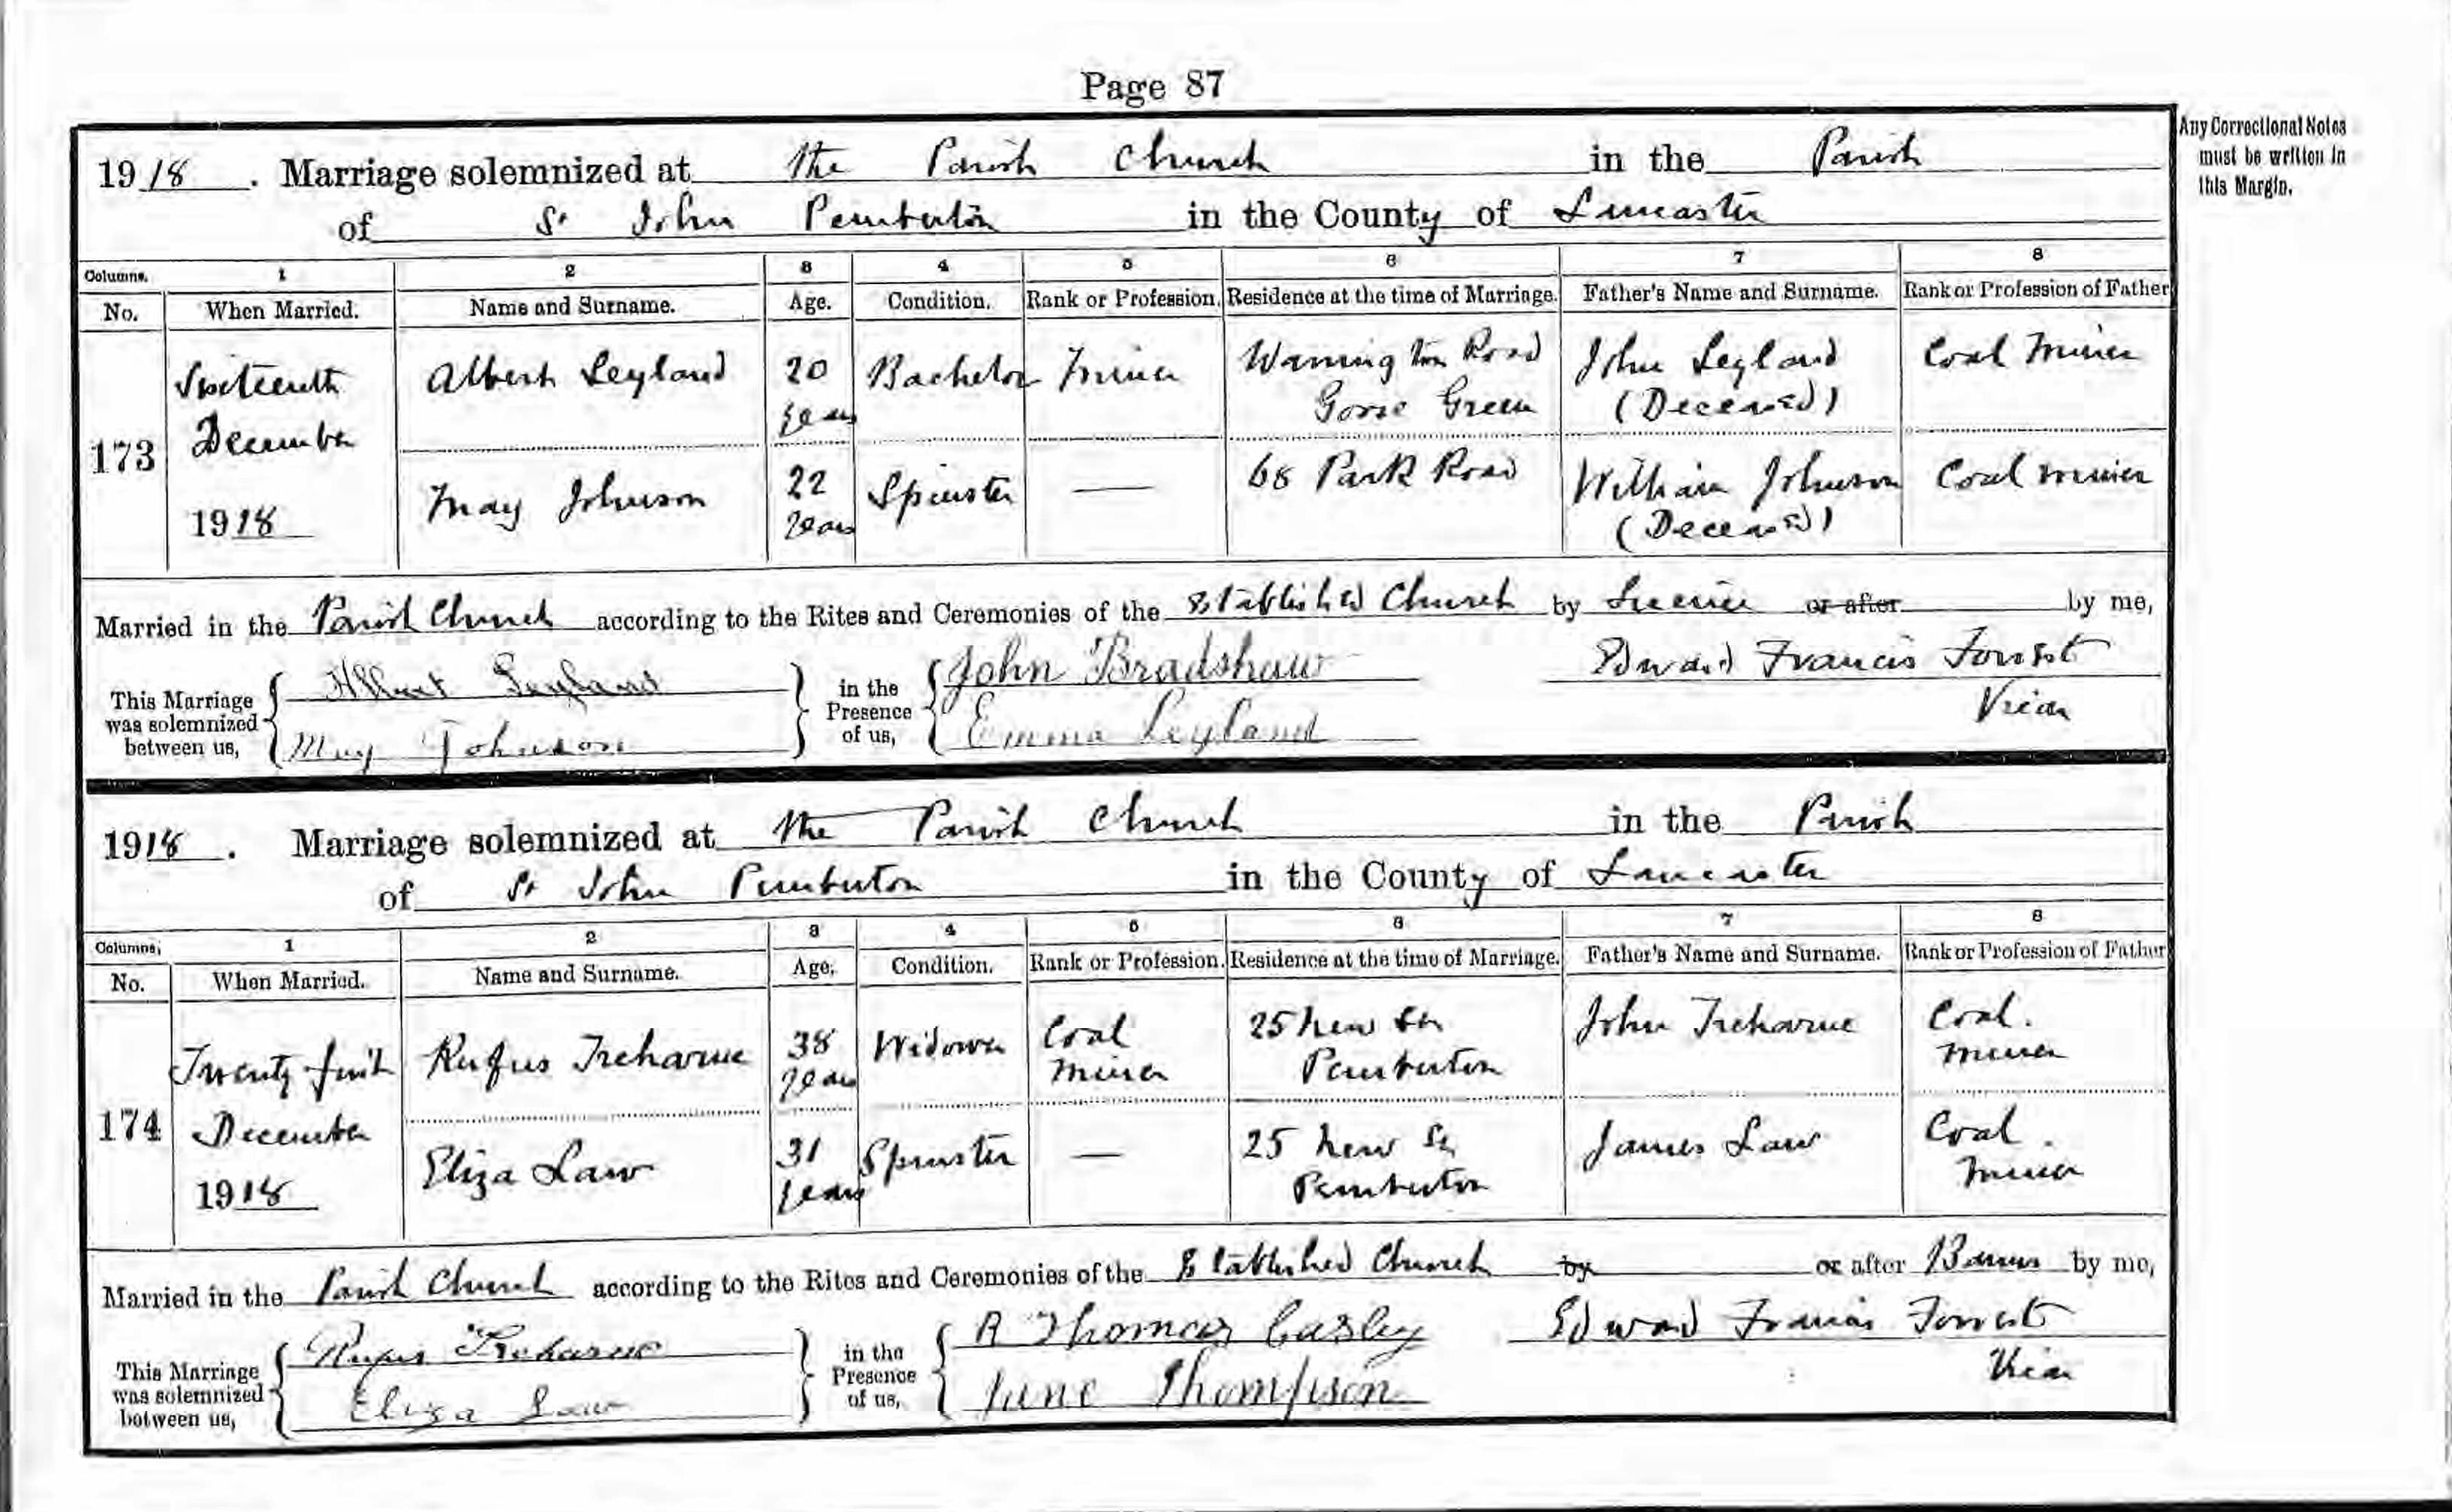 Page 87
Any Correctional Notes
must be written in
this Margin.
1918. Marriage solemnized at the Parish Church in the Parish
of St John Pemberton in the County of Lancaster
Columns. 1 2 3 4 5 6 7 8
No. When Married. Name and Surname. Age. Condition. Rank or Profession. Residence at the time of Marriage. Father's Name and Surname. Rank or Profession of Father
173
Sixteenth
December
1918
Albert Leyland 20 years Bachelor Miner Warrington Road Goose Green John Leyland (Deceased) Coal Miner
May Johnson 22 years Spinster — 68 Park Road William Johnson (Deceased) Coal miner
Married in the Parish Church according to the Rites and Ceremonies of the Established Church by Licence or after by me,
This Marriage was solemnized between us, Albert Leyland May Johnson in the Presence of us, John Bradshaw Emma Leyland Edward Francis Forrest Vicar
1918. Marriage solemnized at the Parish Church in the Parish
of St John Pemberton in the County of Lancaster
Columns. 1 2 3 4 5 6 7 8
No. When Married. Name and Surname. Age. Condition. Rank or Profession. Residence at the time of Marriage. Father's Name and Surname. Rank or Profession of Father
174
Twenty first
December
1918
Rufus Treharne 38 years Widower Coal miner 25 New St Pemberton John Treharne Coal. miner
Eliza Law 31 years Spinster — 25 New St Pemberton James Law Coal. miner
Married in the Parish Church according to the Rites and Ceremonies of the Established Church by or after Banns by me,
This Marriage was solemnized between us, Rufus Treharne Eliza Law in the Presence of us, R Thomas Jane Thompson Edward Francis Forrest Vicar